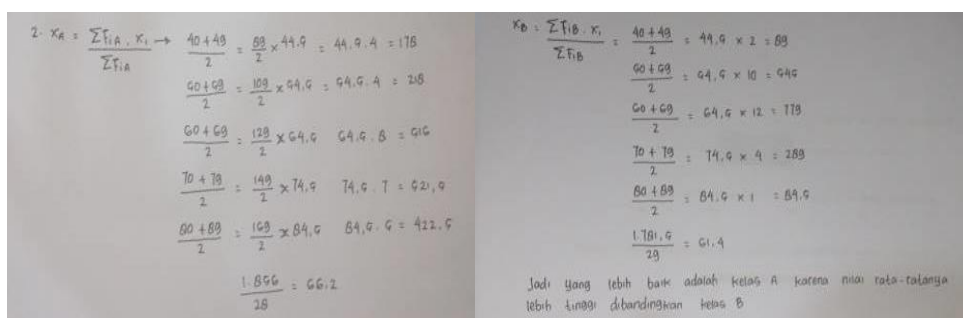 2. XA = ΣfiA . xi → 40+49 = 89 × 44.5 = 44.5.4 = 178
ΣfiA 2 2
50+59 = 109 × 54.5 = 54.5.4 = 218
2 2
60+69 = 129 × 64.5 64.5 . 8 = 516
2 2
70+79 = 149 × 74,5 74,5 . 7 = 521,5
2 2
80+89 = 169 × 84,5 84,5 . 5 = 422.5
2 2
1.856 = 66.2
28
XB : ΣfiB . xi = 40+49 = 44,5 × 2 = 89
ΣfiB 2
50+59 = 54,5 × 10 = 545
2
60+69 = 64,5 × 12 = 774
2
70+79 = 74,5 × 4 = 289
2
80+89 = 84.5 × 1 = 84,5
2
1.781,5 = 61.4
29
Jadi yang lebih baik adalah kelas A karena nilai rata-ratanya
lebih tinggi dibandingkan kelas B